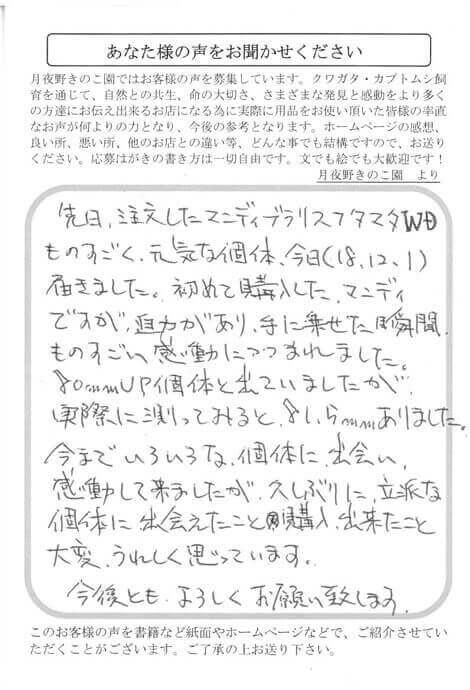 あなた様の声をお聞かせください
月夜野きのこ園ではお客様の声を募集しています。クワガタ・カブトムシ飼
育を通じて、自然との共生、命の大切さ、さまざまな発見と感動をより多く
の方達にお伝え出来るお店になる為に実際に用品をお使い頂いた皆様の率直
なお声が何よりの力となり、今後の参考となります。ホームページの感想、
良い所、悪い所、他のお店との違い等、どんな事でも結構ですので、お送り
ください。応募はがきの書き方は一切自由です。文でも絵でも大歓迎です！
月夜野きのこ園 より
先日、注文したマニディブラリスフタマタWD
ものすごく、元気な個体、今日(18.12.1)
届きました。初めて購入した、マンディ
ですが、迫力があり、手に乗せた瞬間
ものすごい感動につつまれました。
80mmUP個体と出ていましたが、
実際に測ってみると、81.5mmありました。
今までいろいろな、個体に、出会い、
感動して来ましたが、久しぶりに、立派な
個体に出会えたこと購入出来たこと
大変、うれしく思っています。
今後とも、よろしくお願い致します。
このお客様の声を書籍など紙面やホームページなどで、ご紹介させてい
ただくことがございます。ご了承の上お送り下さい。